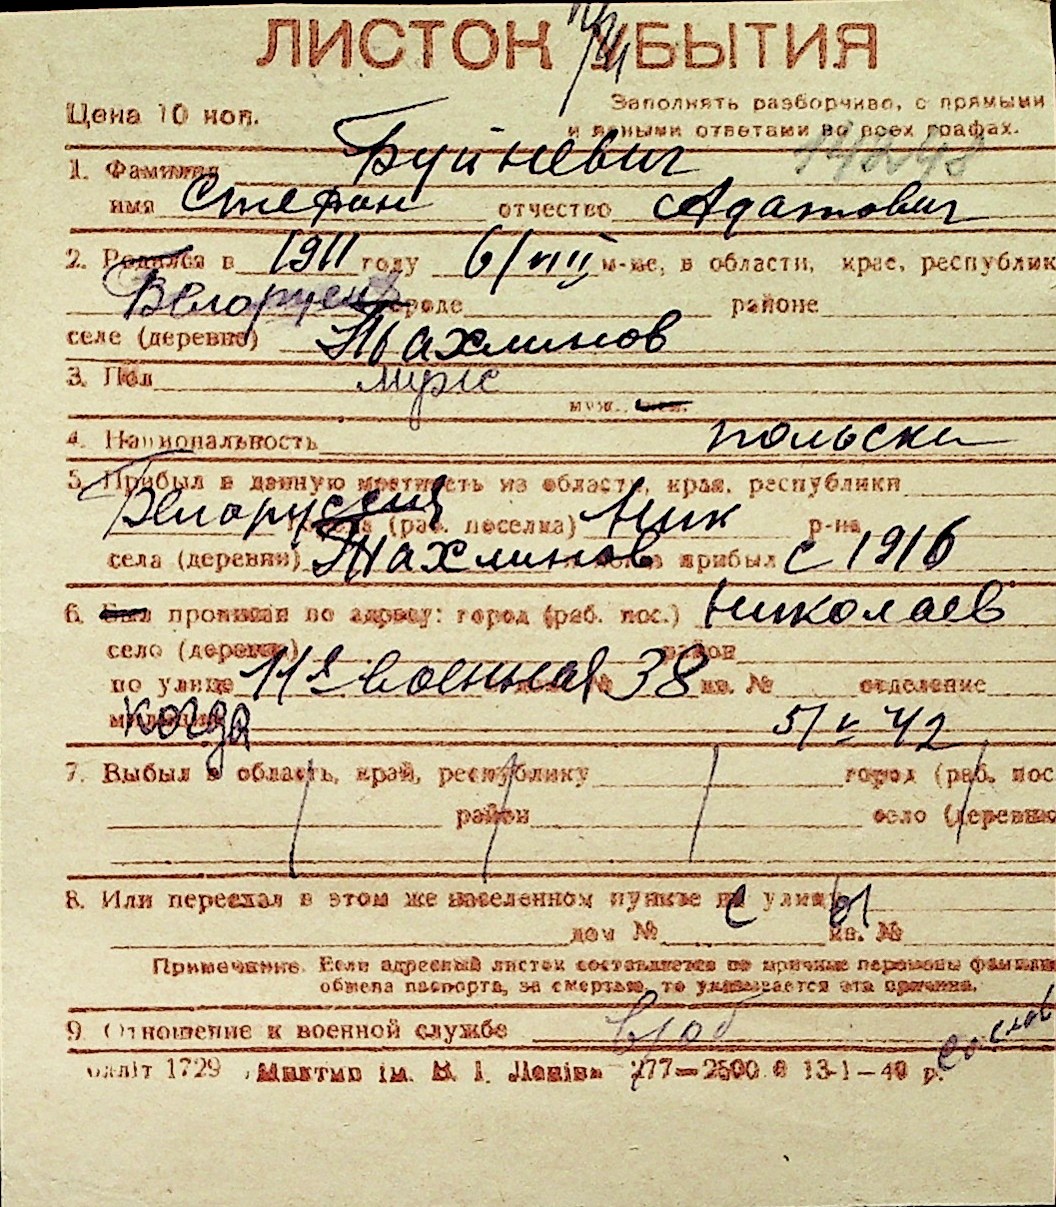 ЛИСТОК УБЫТИЯ
Цена 10 коп.
Заполнять разборчиво, с прямыми
и ясными ответами во всех графах.
1. Фамилия Буйневич
имя Стефан отчество Адамович
2. Родился в 1911 году 6/VIII м-це, в области, крае, республик
Белоруссия городе районе
селе (деревне) Тахминов
3. Пол мужс
муж. жен.
4. Национальность польска
5. Прибыл в данную местность из области, края, республики
Белоруссия города (раб. поселка) р-на
села (деревни) Тахминов прибыл с 1916
6. Был прописан по адресу: город (раб. пос.) Николаев
село (деревня) район
по улице 11я военная № 38 кв. № отделение
милиции когда 5/V 42
7. Выбыл в область, край, республику город (раб. пос
район село (деревню
8. Или переехал в этом же населенном пункте на улицу
дом № кв. №
Примечание. Если адресный листок составляется по причине перемены фамилии
обмена паспорта, за смертью, то указывается эта причина.
9. Отношение к военной службе в/об
Облліт 1729 Миктип ім. В. І. Леніна 277—2500 13-1-40 р.